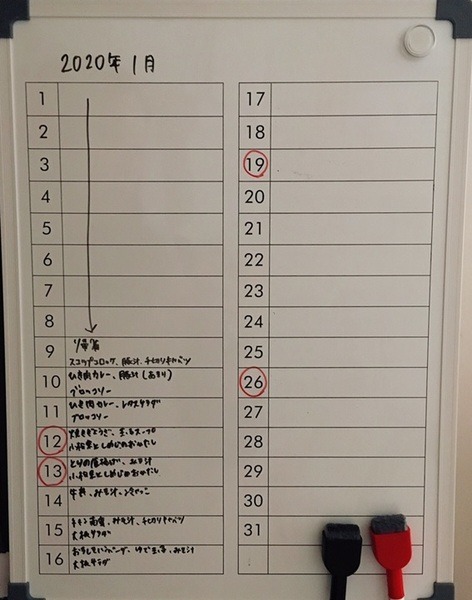 2020年1月
1
2
3
4
5
6
7
8
9
スコップコロッケ、豚汁、千切りキャベツ
10 ひき肉カレー、豚汁(あまり)
ブロッコリー
11 ひき肉カレー、レタスサラダ
ブロッコリー
12 焼きぎょうざ、スープ
小松菜としめじのおひたし
13 とりの唐揚げ、みそ汁
小松菜としめじのおひたし
14 牛丼、みそ汁
15 キャベツ
大根サラダ
16 みそ汁
大根サラダ
17
18
19
20
21
22
23
24
25
26
27
28
29
30
31